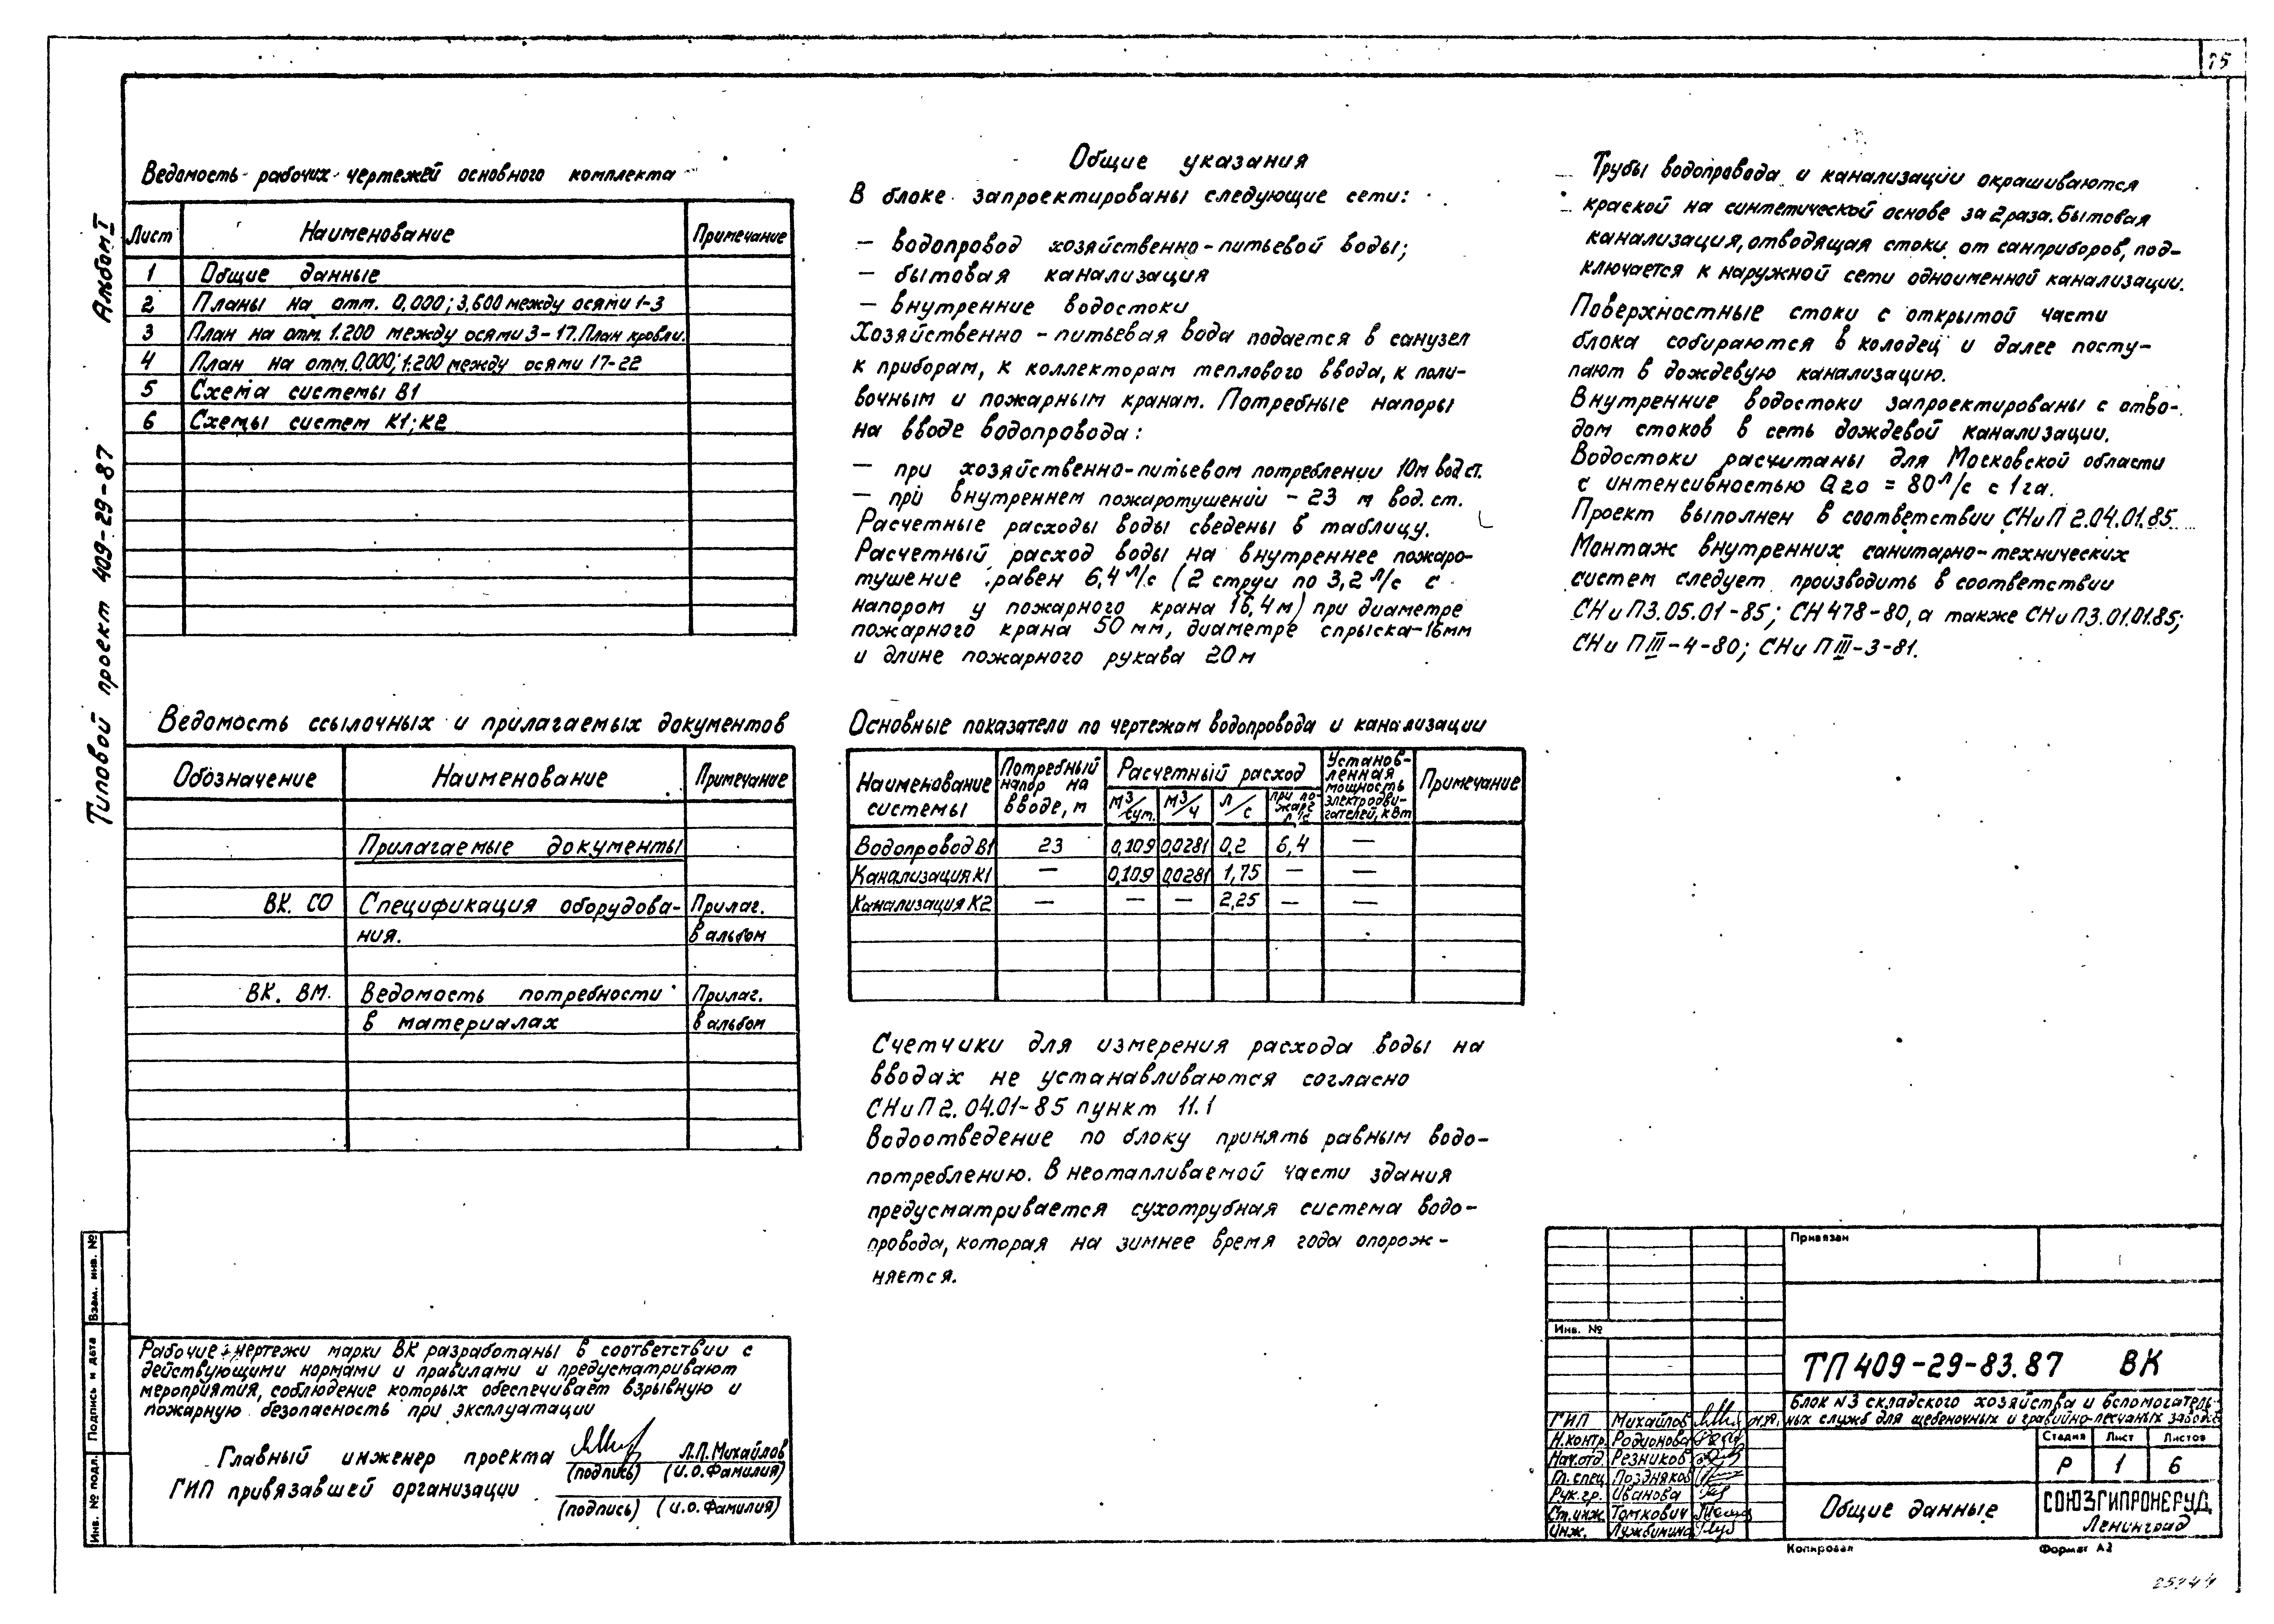 Альбом I
Типовой проект 409-29-87
Ведомость рабочих чертежей основного комплекта
Лист Наименование Примечание
1 Общие данные
2 Планы на отм. 0,000; 3,600 между осями 1-3
3 План на отм. 1.200 между осями 3-17. План кровли.
4 План на отм. 0,000; 1.200 между осями 17-22
5 Схема системы В1
6 Схемы систем К1; К2
Ведомость ссылочных и прилагаемых документов
Обозначение Наименование Примечание
Прилагаемые документы
ВК. СО Спецификация оборудова- Прилаг.
ния. в альбом
ВК. ВМ. Ведомость потребности Прилаг.
в материалах в альбом
Рабочие чертежи марки ВК разработаны в соответствии с
действующими нормами и правилами и предусматривают
мероприятия, соблюдение которых обеспечивает взрывную и
пожарную безопасность при эксплуатации
Главный инженер проекта Л.П. Михайлов
(подпись) (и.о. Фамилия)
ГИП привязавшей организации
(подпись) (и.о. Фамилия)
Общие указания
В блоке запроектированы следующие сети:
— водопровод хозяйственно-питьевой воды;
— бытовая канализация
— внутренние водостоки
Хозяйственно-питьевая вода подается в санузел
к приборам, к коллекторам теплового ввода, к поли-
вочным и пожарным кранам. Потребные напоры
на вводе водопровода:
— при хозяйственно-питьевом потреблении 10м вод ст.
— при внутреннем пожаротушении - 23 м вод. ст.
Расчетные расходы воды сведены в таблицу.
Расчетный расход воды на внутреннее пожаро-
тушение равен 6,4 л/с (2 струи по 3,2 л/с с
напором у пожарного крана 16,4м) при диаметре
пожарного крана 50 мм, диаметре спрыска-16мм
и длине пожарного рукава 20м
Основные показатели по чертежам водопровода и канализации
Наименование системы Потребный напор на вводе, м Расчетный расход Установ-ленная мощность электродви-гателей, кВт Примечание
м3/сут. м3/ч л/с при по-жаре л/с
Водопровод В1 23 0,109 0,0281 0,2 6,4 —
Канализация К1 — 0,109 0,0281 1,75 — —
Канализация К2 — — — 2,25 — —
Счетчики для измерения расхода воды на
вводах не устанавливаются согласно
СНиП 2.04.01-85 пункт 11.1
Водоотведение по блоку принять равным водо-
потреблению. В неотапливаемой части здания
предусматривается сухотрубная система водо-
провода, которая на зимнее время года опорож-
няется.
Трубы водопровода и канализации окрашиваются
краской на синтетической основе за 2 раза. Бытовая
канализация, отводящая стоки от санприборов, под-
ключается к наружной сети одноименной канализации.
Поверхностные стоки с открытой части
блока собираются в колодец и далее посту-
пают в дождевую канализацию.
Внутренние водостоки запроектированы с отво-
дом стоков в сеть дождевой канализации.
Водостоки расчитаны для Московской области
с интенсивностью Q20 = 80 л/с с 1 га.
Проект выполнен в соответствии СНиП 2.04.01.85
Монтаж внутренних санитарно-технических
систем следует производить в соответствии
СНиП3.05.01-85; СН 478-80, а также СНиП3.01.01.85;
СНиП III-4-80; СНиП III-3-81.
Привязан
Инв. №
ТП 409-29-83.87 ВК
Блок N3 складского хозяйства и вспомогатель-
ных служб для щебеночных и гравийно-песчаных заводов
ГИП Михайлов
Н.контр. Родионова
Нач.отд. Резников
Гл. спец. Поздняков
Рук. гр. Иванова
Ст. инж. Томкович
Инж. Лужбинина
Стадия Лист Листов
Р 1 6
Общие данные
СОЮЗГИПРОНЕРУД
Ленинград
Копировал Формат А2
Взам. инв. №
Подпись и дата
Инв. № подл.